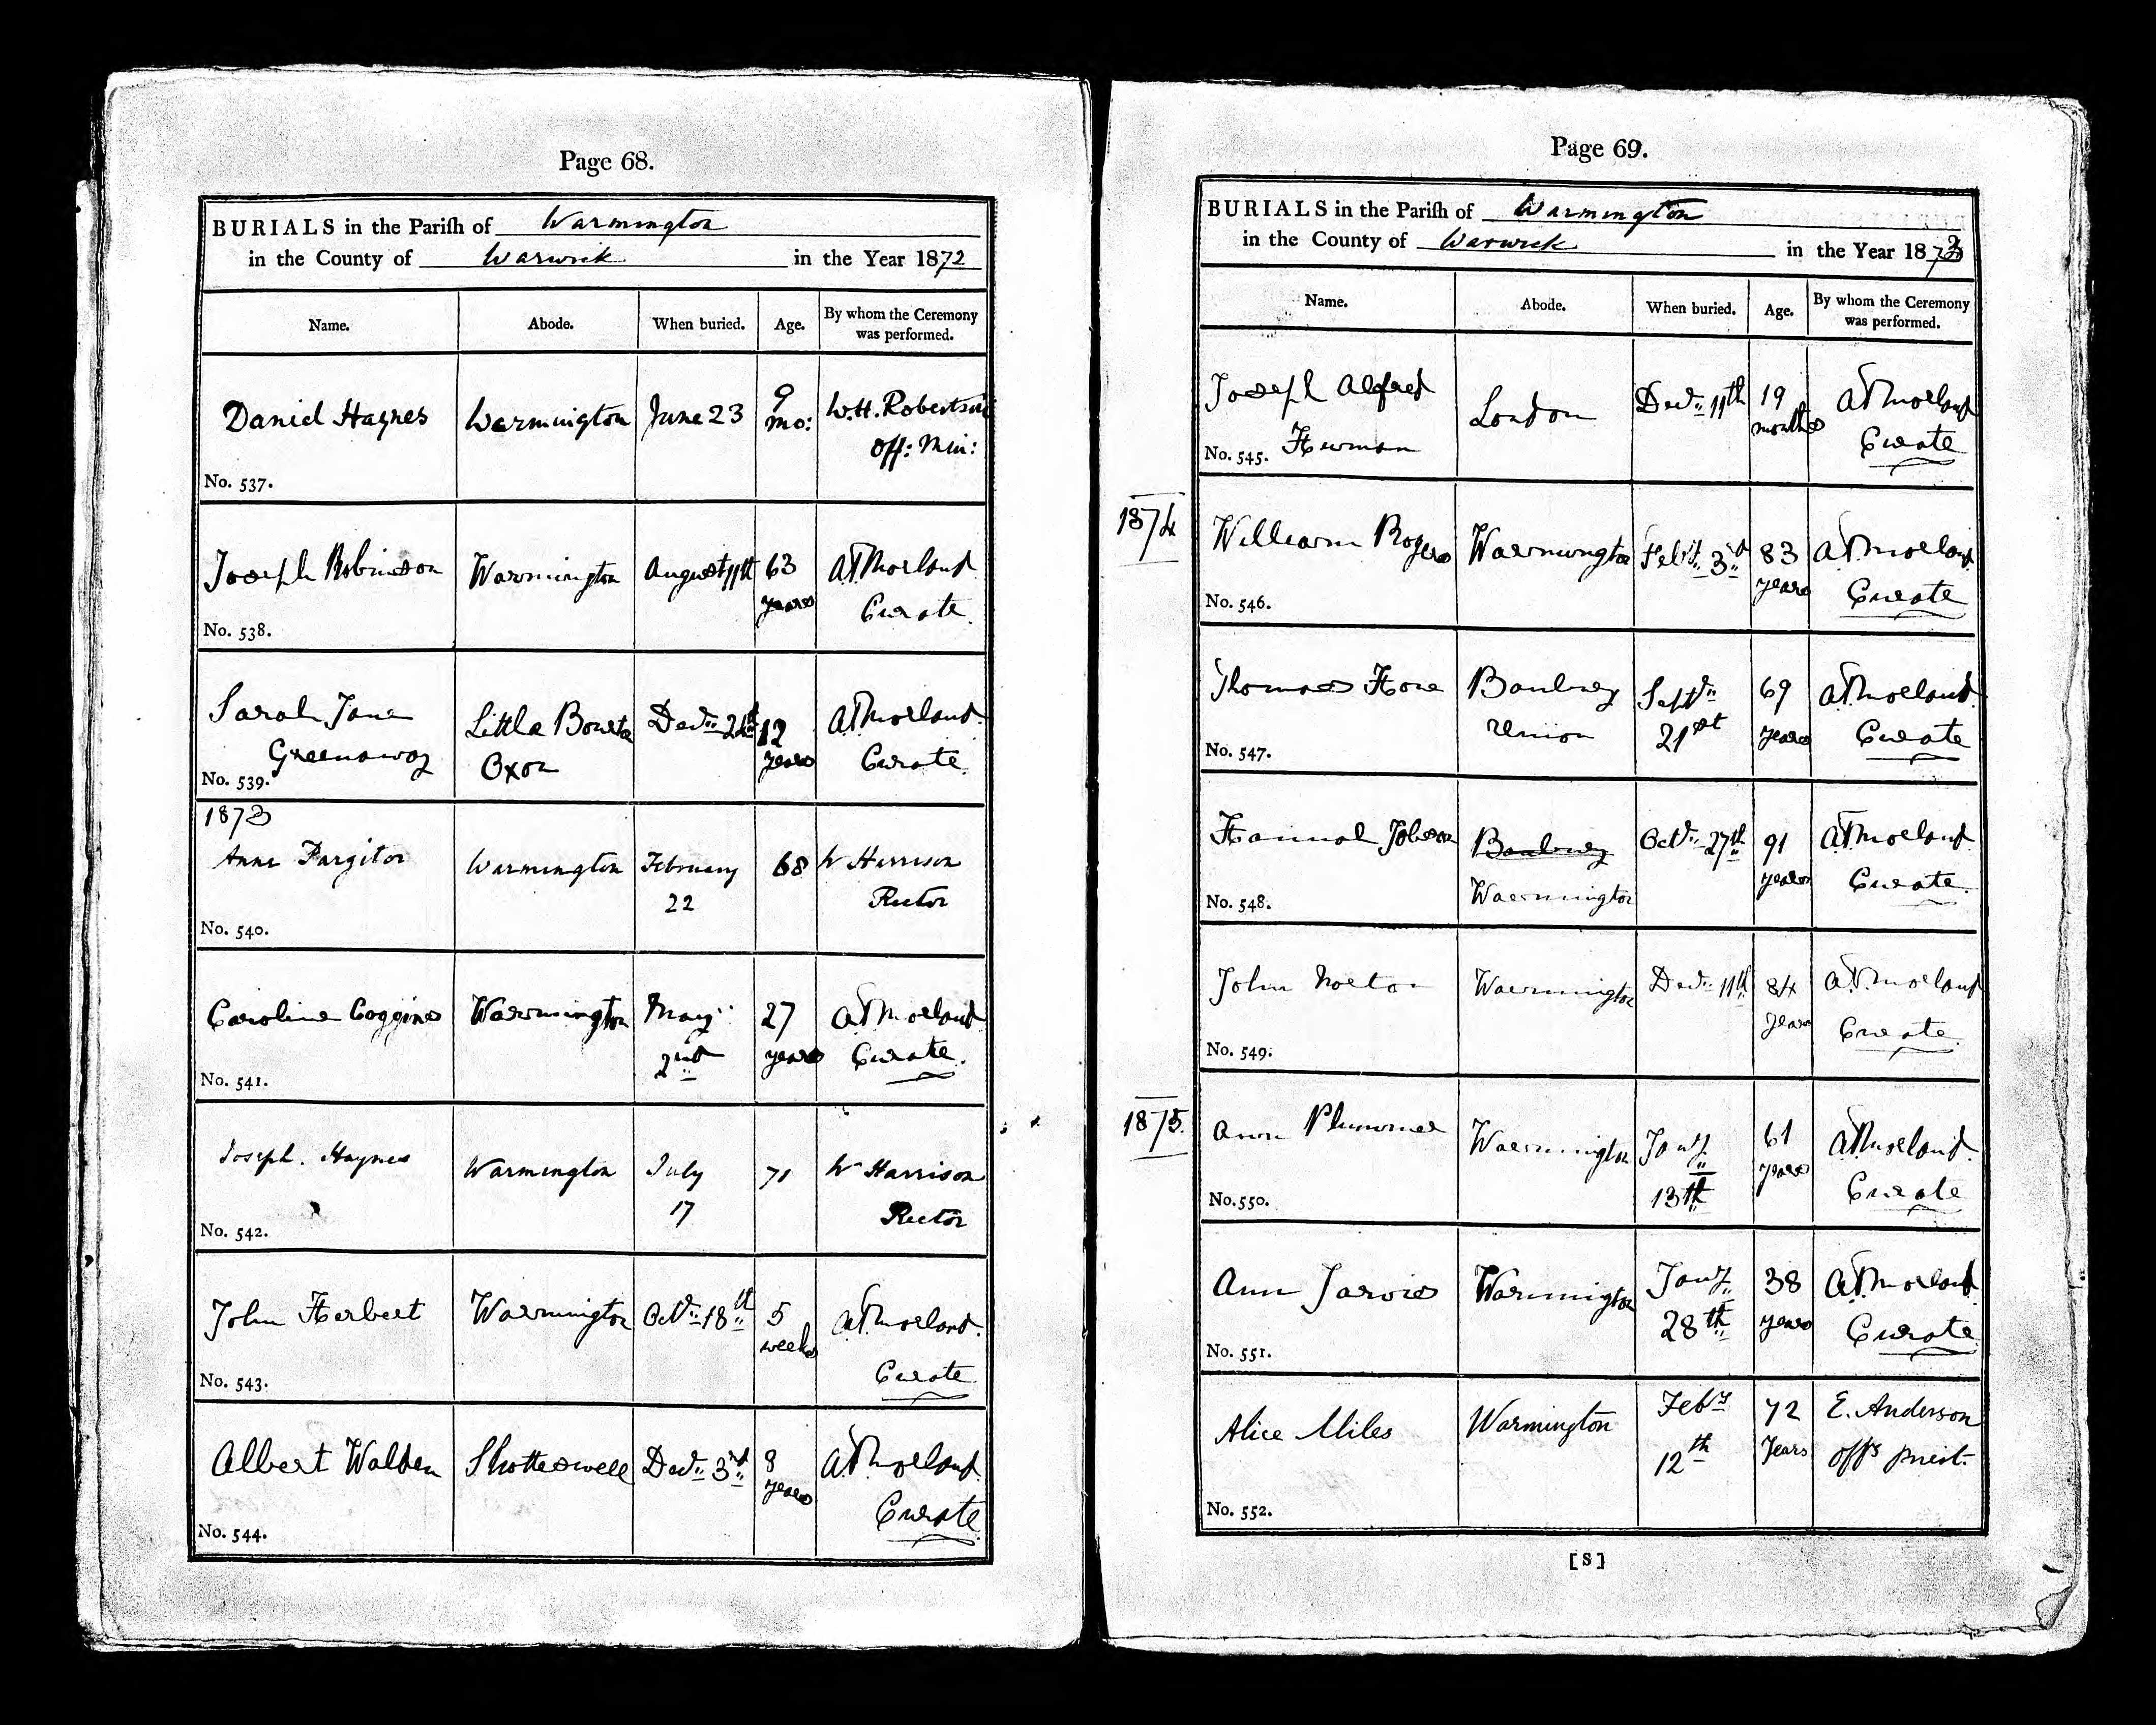 Page 68.
BURIALS in the Pariſh of Warmington
in the County of Warwick in the Year 1872
Name. Abode. When buried. Age. By whom the Ceremony was performed.
Daniel Haynes Warmington June 23 9 mo: W.H. Robertson Off: Min:
No. 537.
Joseph Robinson Warmington August 11th 63 years A.T. Morland Curate.
No. 538.
Sarah Jane Greenaway Little Bourton Oxon Decr. 12 years A.T. Morland. Curate.
No. 539.
1873
Anne Purgitor Warmington February 22 68 W Harrison Rector
No. 540.
Caroline Coggins Warmington May 2nd 27 years A.T. Morland Curate.
No. 541.
Joseph. Haynes Warmington July 17 71 W Harrison Rector
No. 542.
John Herbert Warmington Octr. 18th 5 weeks A.T. Morland. Curate
No. 543.
Albert Walden Shotteswell Decr. 3rd 8 years A.T. Morland. Curate
No. 544.
Page 69.
BURIALS in the Pariſh of Warmington
in the County of Warwick in the Year 1873
Name. Abode. When buried. Age. By whom the Ceremony was performed.
Joseph Alfred Herman London Decr. 11th 19 months A.T. Morland Curate
No. 545.
1874
William Rogers Warmington Feby. 3rd 83 years A.T. Morland. Curate
No. 546.
Thomas Hore Banbury Union Septr. 21st 69 years A.T. Morland. Curate
No. 547.
Hannah Jobson Banbury Warmington Octr. 27th 91 years A.T. Morland Curate.
No. 548.
John Norton Warmington Decr. 11th 84 years A.T. Morland Curate.
No. 549.
1875.
Ann Plummer Warmington Jany. 13th 61 years A.T. Morland. Curate
No. 550.
Ann Jarvis Warmington Jany. 28th 38 years A.T. Morland Curate
No. 551.
Alice Miles Warmington Feby 12th 72 Years E. Anderson Offg priest.
No. 552.
[S]